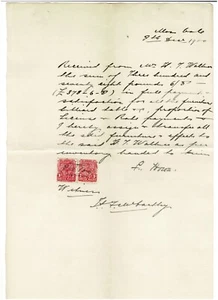 9th Decr 19
Received from Mr H. T. Wallace
the sum of Three hundred and
seventy eight pounds 6/8
(£378-6-8) in full payment &
satisfaction for all the furniture
billiard table & proportion of
License & Rate payments &
I hereby assign & transfer all
the said furniture & effects to
the said H T Wallace as per
inventory handed to him
Witness